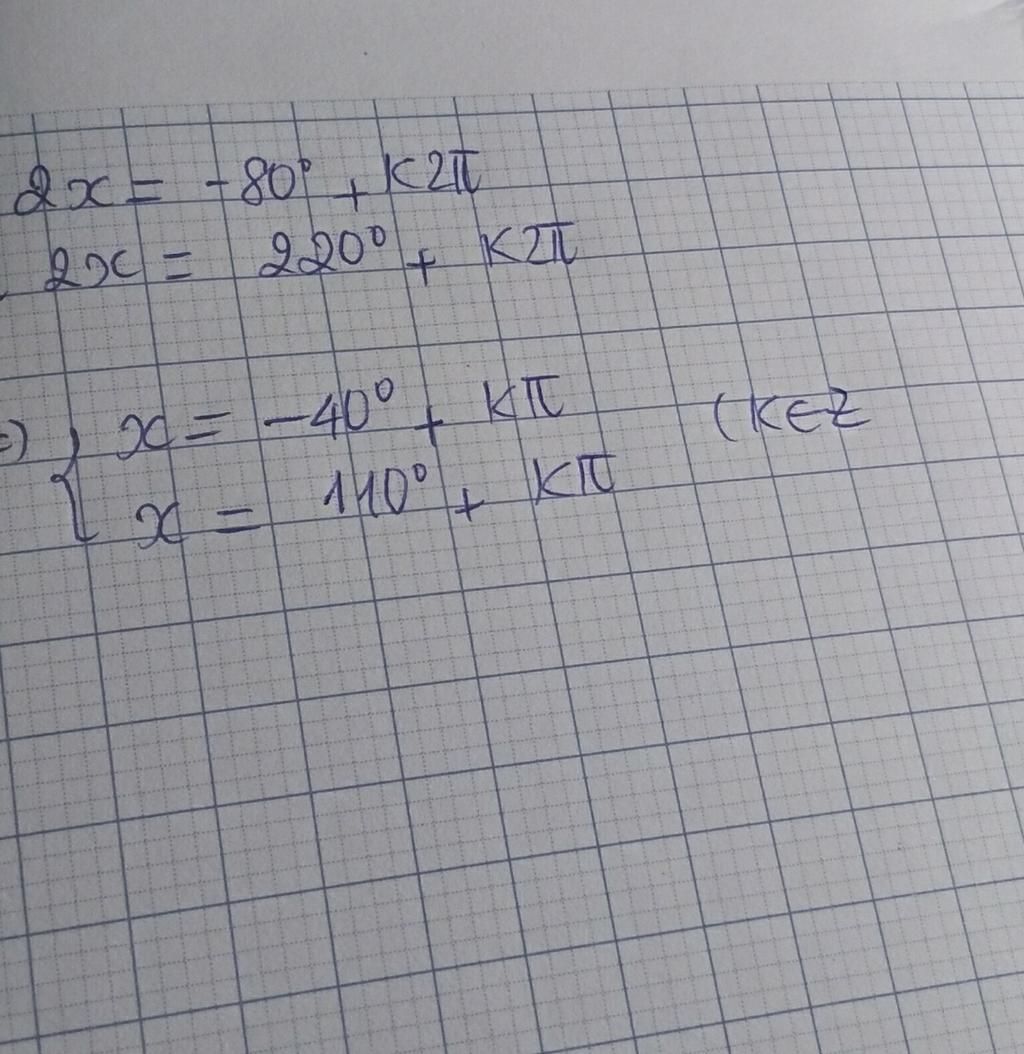 2x = -80° + K2π
2x = 220° + K2π
=) { x = -40° + Kπ (K∈Z
x = 110° + Kπ